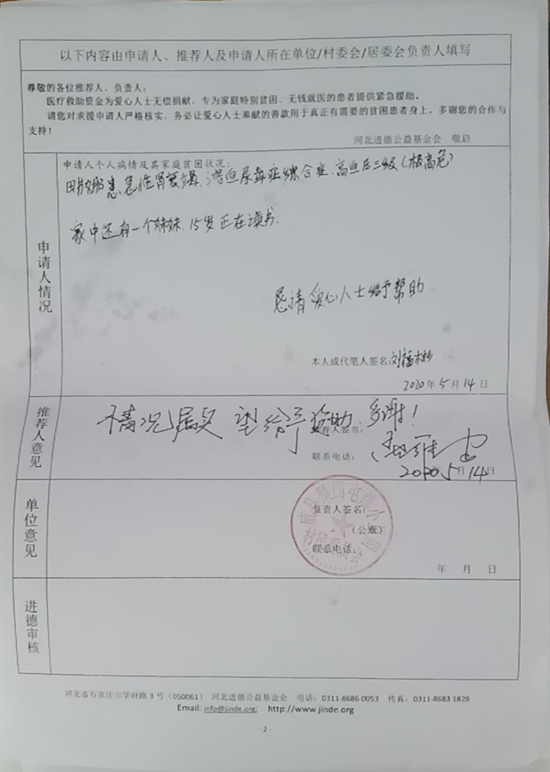 以下内容由申请人、推荐人及申请人所在单位/村委会/居委会负责人填写
尊敬的各位推荐人、负责人：
医疗救助资金为爱心人士无偿捐献，专为家庭特别贫困、无钱就医的患者提供紧急援助。
请您对求援申请人严格核实，务必让爱心人士奉献的善款用于真正有需要的贫困患者身上。多谢您的合作与
支持！
河北进德公益基金会 敬启
申请人情况
申请人个人病情及其家庭贫困状况：
患急性肾衰竭，溶血尿毒症综合症，高血压三级（极高危）
家中还有一个妹妹，15岁正在读书.
恳请爱心人士给予帮助
本人或代笔人签名：
2020年5月14日
推荐人意见
情况属实 望给予资助，多谢！
推荐人签名：
联系电话：
2020.5月14日
单位意见
负责人签名：
（公章）
联系电话：
年 月 日
进德审核
河北省石家庄市学府路3号（050061） 河北进德公益基金会 电话：0311-8686 0053 传真：0311-8683 1829
Email: info@jinde.org; http://www.jinde.org
- 2 -